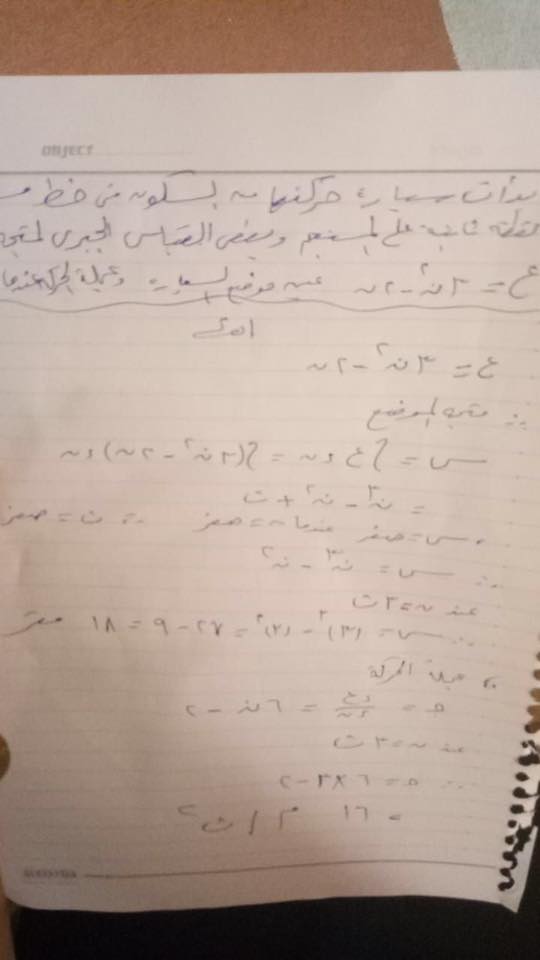 OBJECT
بدأت سيارة حركتها من السكون فى خط
نقطة ثابتة على المستقيم ويعطى القياس الجبرى لمتجه
ع = ٣ن٢ - ٢ن عين موضع السيارة وعجلة الحركة عندما
الحل
ع = ٣ن٢ - ٢ن
∴ متجه الموضع
س = ∫ ع ءن = ∫(٣ن٢ - ٢ن) ءن
= ن٣ - ن٢ + ث
، س = صفر عندما ن = صفر ∴ ث = صفر
∴ س = ن٣ - ن٢
عند ن = ٣ ث
∴ س = (٣)٣ - (٣)٢ = ٢٧ - ٩ = ١٨ متر
، عجلة الحركة
ﺣ = ءع/ءن = ٦ن - ٢
عند ن = ٣ ث
∴ ﺣ = ٦ × ٣ - ٢
= ١٦ م / ث٢